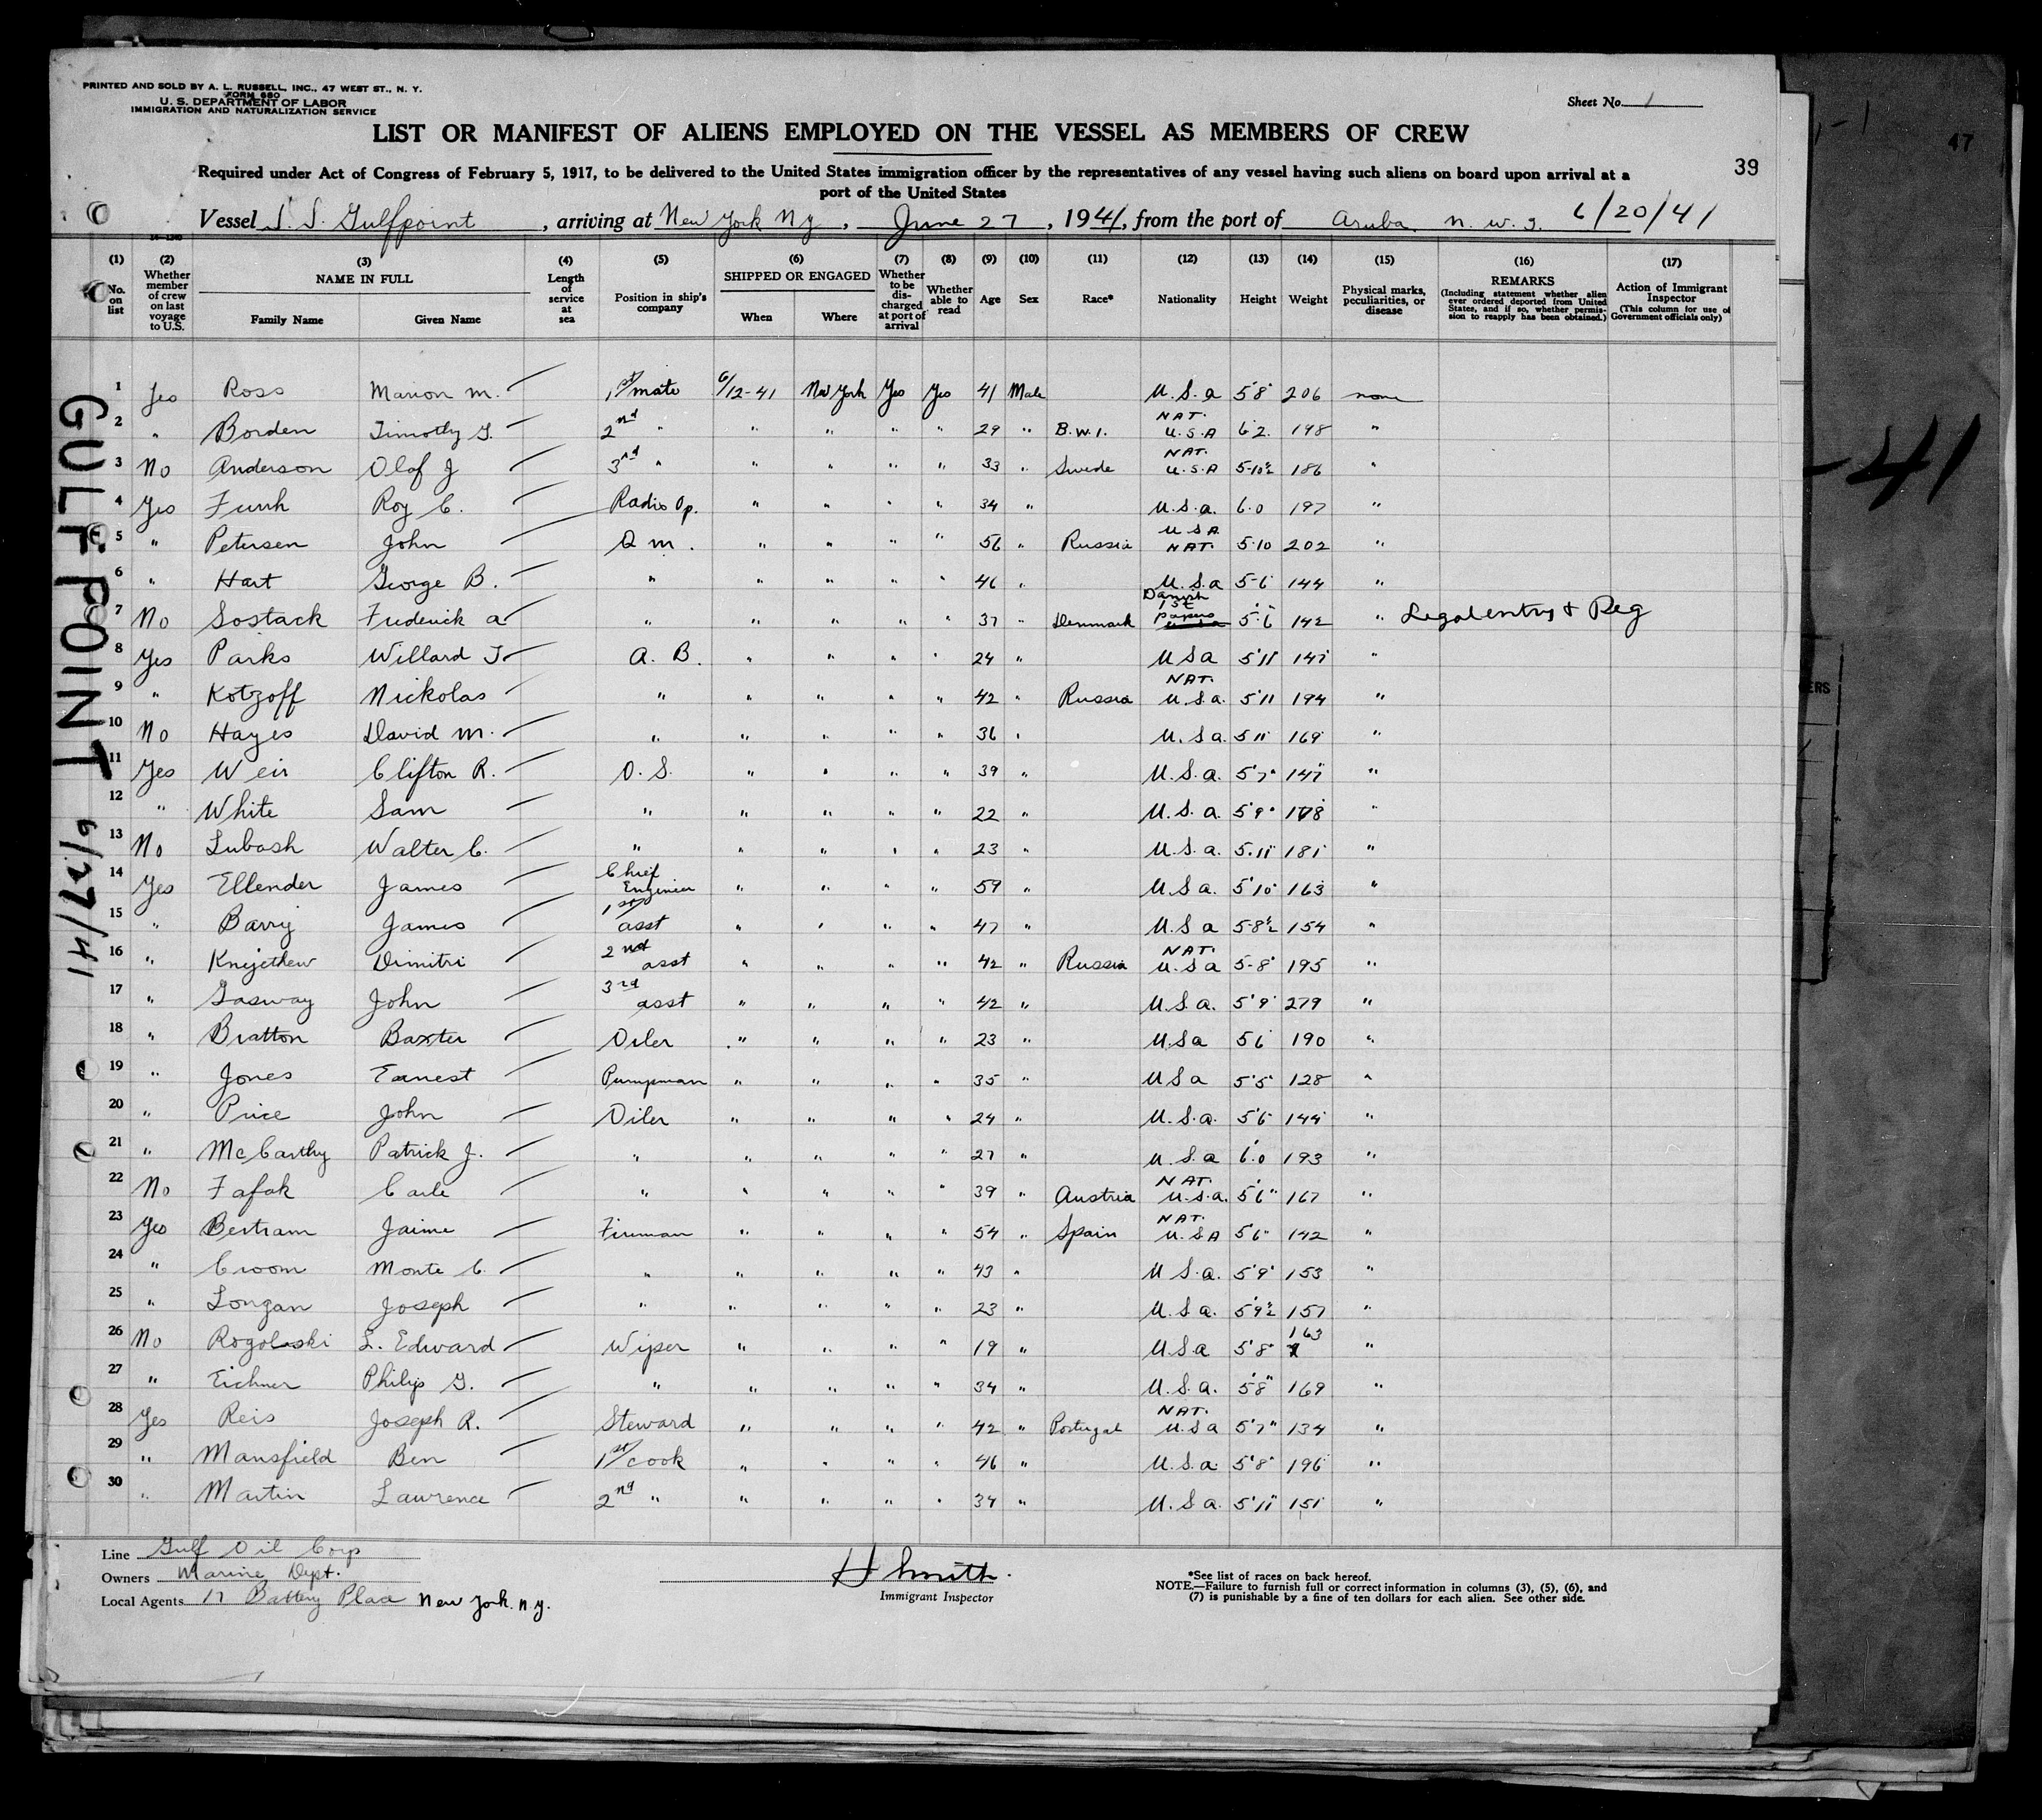 PRINTED AND SOLD BY A. L. RUSSELL, INC., 47 WEST ST., N. Y.
FORM 680
U. S. DEPARTMENT OF LABOR
IMMIGRATION AND NATURALIZATION SERVICE
Sheet No. 1
LIST OR MANIFEST OF ALIENS EMPLOYED ON THE VESSEL AS MEMBERS OF CREW
Required under Act of Congress of February 5, 1917, to be delivered to the United States immigration officer by the representatives of any vessel having such aliens on board upon arrival at a
port of the United States
39
47
Vessel S. S. Gulfpoint, arriving at New York Ny, June 27, 1941, from the port of Aruba. N. W. I. 6/20/41
(1) No. on list (2) Whether member of crew on last voyage to U.S. (3) NAME IN FULL Family Name Given Name (4) Length of service at sea (5) Position in ship's company (6) SHIPPED OR ENGAGED When Where (7) Whether to be discharged at port of arrival (8) Whether able to read (9) Age (10) Sex (11) Race* (12) Nationality (13) Height (14) Weight (15) Physical marks, peculiarities, or disease (16) REMARKS (Including statement whether alien ever ordered deported from United States, and if so, whether permission to reapply has been obtained.) (17) Action of Immigrant Inspector (This column for use of Government officials only)
1 Yes Ross Marion M. 1st mate 6/12-41 New York Yes Yes 41 Male U.S.a 5'8" 206 none
2 " Borden Timothy 2nd " " " " " 29 " B.W.I. NAT. U.S.A 6'2. 198 "
3 No Anderson Olof J 3rd " " " " " 33 " Swede NAT. U.S.A 5-10½ 186 "
4 Yes Roy C. Radio Op. " " " " 34 " U.S.a. 6.0 197 "
5 " Petersen John Q m. " " " " 56 " Russia U S A NAT. 5.10 202 "
6 " Hart George B. " " " " " 46 " U.S.a 5-6 144 "
7 No Sostack Frederick a " " " " " 37 " Denmark Danish 1st Papers 5'.6 142 " Legal entry & Reg
8 Yes Parks Willard A. B. " " " " 24 " U S a 5'11 147 "
9 " Kotzoff Nickolas " " " " " 42 " Russia NAT. U.S.a. 5'11 194 "
10 No Hayes David M. " " " " " 36 " U.S.a. 5 11 169 "
11 Yes Weir Clifton R. O. S. " " " " 39 " U.S.a. 5'7" 147 "
12 " White Sam " " " " " 22 " U.S.a. 5'9" 178 "
13 No Lubash Walter C. " " " " " 23 " U.S.a. 5.11 181 "
14 Yes Ellender James Chief Engineer " " " " 59 " U.S a. 5'10" 163 "
15 " Barry James 1st asst " " " " 47 " U.S a 5-8½ 154 "
16 " Dimitri 2nd asst " " " " 42 " Russia NAT. U.S a 5-8" 195 "
17 " Gasway John 3rd asst " " " " 42 " U.S a. 5'9" 279 "
18 " Bratton Baxter Oiler " " " " 23 " U.S a 5 6 190 "
19 " Jones Earnest Pumpman " " " " 35 " U S a 5'5" 128 "
20 " Price John Oiler " " " " 24 " U.S.a. 5'6 144 "
21 " McCarthy Patrick J. " " " " " 27 " U.S.a 6.0 193 "
22 No Fafak Carle " " " " " 39 " Austria NAT. U.S.a. 5'6" 167 "
23 Yes Bertram Jaime Fireman " " " " 54 " Spain NAT. U.S A 5'6" 142 "
24 " Croom Monte C. " " " " " 43 " U S.a. 5'9" 153 "
25 " Longan Joseph " " " " " 23 " U.S a. 5'9½ 157 "
26 No Rogolaski L. Edward Wiper " " " " 19 " U.S.a 5'8" 163 "
27 " Eichner Philip G. " " " " " 34 " U.S.a. 5'8" 169 "
28 Yes Reis Joseph R. Steward " " " " 42 " Portugal NAT. U.S a 5'7" 134 "
29 " Mansfield Ben 1st cook " " " " 46 " U.S.a 5'8" 196 "
30 " Martin Lawrence 2nd " " " " " 34 " U.S a. 5'11" 151 "
GULFPOINT 6/27/41
-41
Line Gulf Oil Corp
Owners Marine Dept.
Local Agents 17 Battery Place New York. n.y.
H Smith.
Immigrant Inspector
*See list of races on back hereof.
NOTE.—Failure to furnish full or correct information in columns (3), (5), (6), and
(7) is punishable by a fine of ten dollars for each alien. See other side.